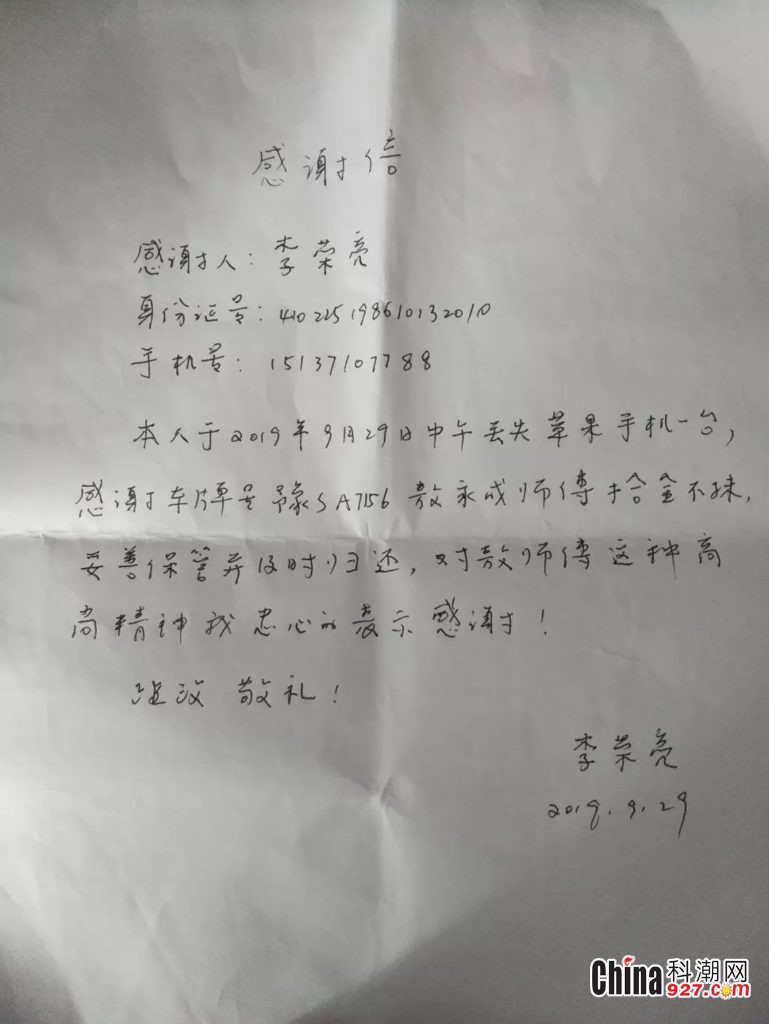 感谢信
感谢人：李荣亮
身份证号：410225198610132010
手机号：15137107788
本人于2019年9月29日中午丢失苹果手机一台，
感谢车牌号豫SA7156敖永成师傅拾金不昧，
妥善保管并及时归还，对敖师傅这种高
尚精神我忠心的表示感谢！
经次 敬礼！
李荣亮
2019.9.29
China科潮网
927.com